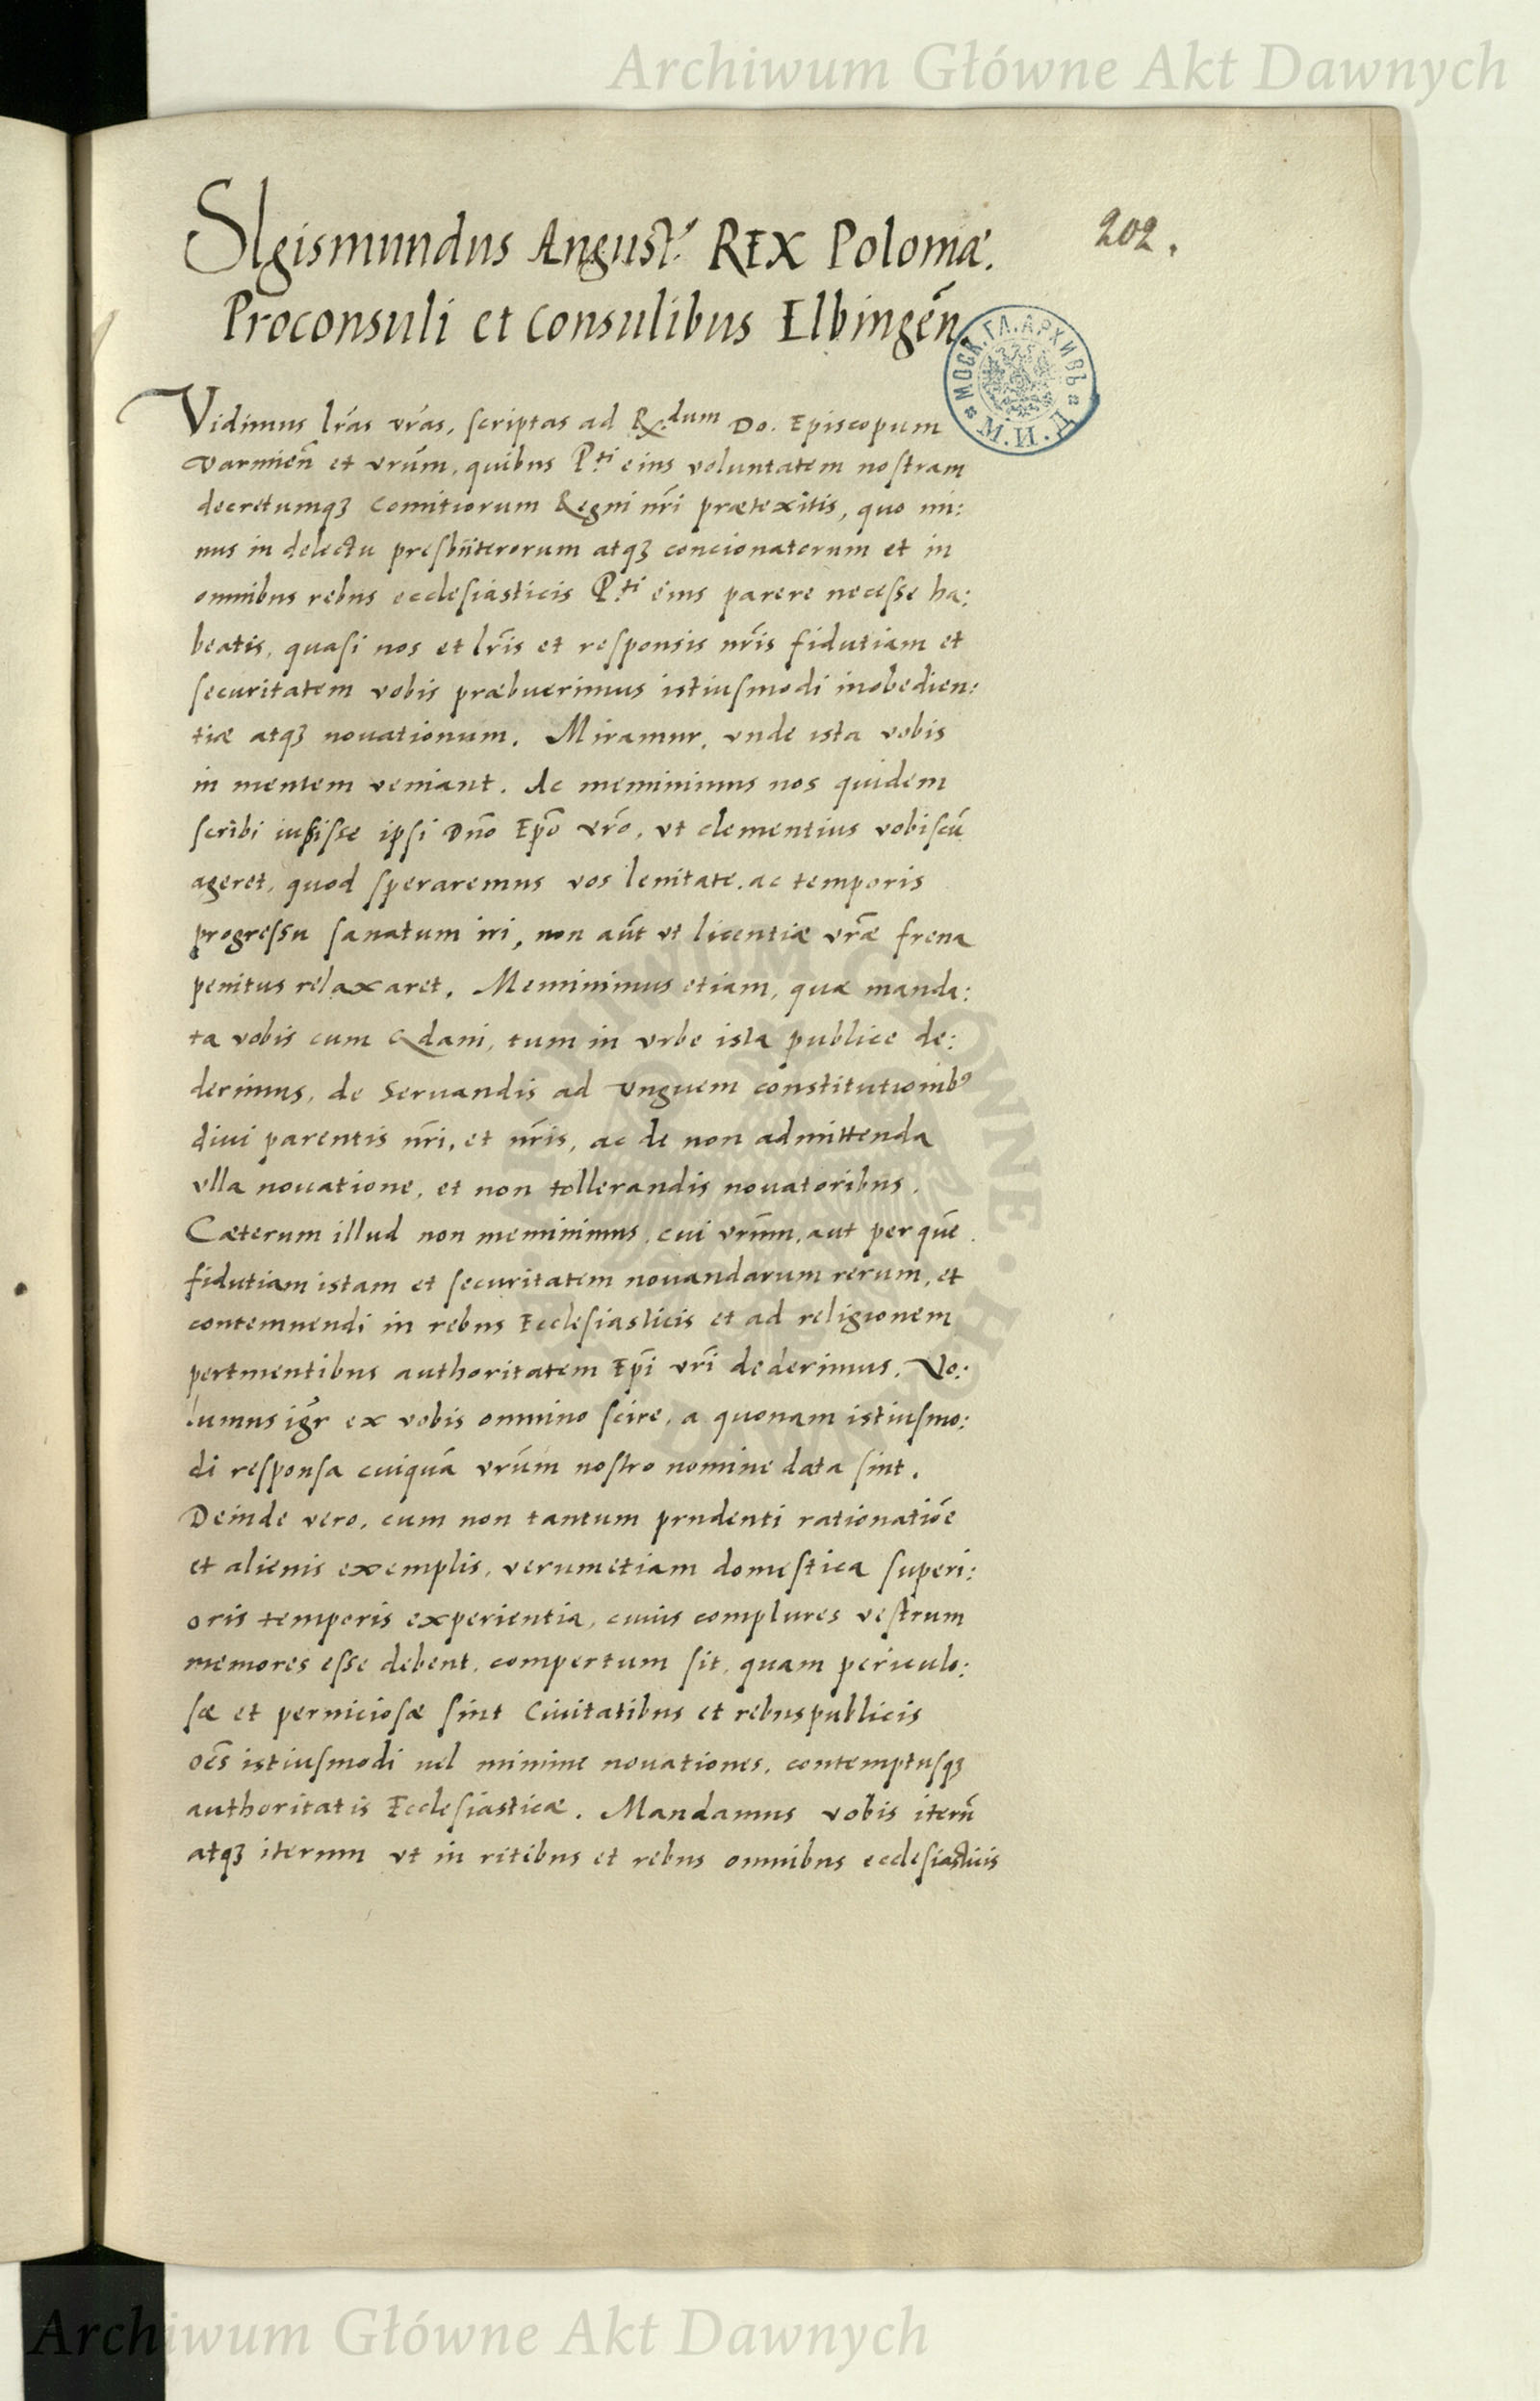 Archiwum Główne Akt Dawnych
202.
SIgismundus August' REX Poloniæ.
Proconsuli et Consulibus Elbingeñ
МОСК. ГЛ. АРХИВЪ М. И. Д.
Vidimus lr̃as vr̃as, scriptas ad R.dum Do. Episcopum
Varmieñ et vr̃um, quibus P.ti eius voluntatem nostram
decretumqꝫ Comitiorum Regni nr̃i prætexitis, quo mi:
nus in delectu presbiterorum atqꝫ concionatorum et in
omnibus rebus ecclesiasticis P.ti eius parere necesse ha:
beatis, quasi nos et lr̃is et responsis nr̃is fidutiam et
securitatem vobis præbuerimus istiusmodi inobedien:
tiæ atqꝫ nouationum. Miramur, vnde ista vobis
in mentem veniant. Ac meminimus nos quidem
scribi iussisse ipsi Dño Ep̃o vr̃o, vt clementius vobiscũ
ageret, quod speraremus vos lenitate, ac temporis
progressu sanatum iri, non aũt vt licentiæ vr̃æ frena
penitus relaxaret. Meminimus etiam, quæ manda:
ta vobis cum Gdani, tum in vrbe ista publice de:
derimus, de seruandis ad vnguem constitutionib9
diui parentis nr̃i, et nr̃is, ac de non admittenda
vlla nouatione, et non tollerandis nouatoribus.
Cæterum illud non meminimus, cui vr̃um, aut per quẽ
fidutiam istam et securitatem nouandarum rerum, et
contemnendi in rebus Ecclesiasticis et ad religionem
pertinentibus authoritatem Ep̃i vr̃i dederimus. Vo:
lumus igr̃ ex vobis omnino scire, a quonam istiusmo:
di responsa cuiquã vr̃um nostro nomine data sint.
Deinde vero, cum non tantum prudenti rationatiõe
et alienis exemplis, verumetiam domestica superi:
oris temporis experientia, cuius complures vestrum
memores esse debent, compertum sit, quam periculo:
sæ et perniciosæ sint Ciuitatibus et rebuspublicis
oẽs istiusmodi uel minime nouationes, contemptusqꝫ
authoritatis Ecclesiasticæ. Mandamus vobis iterũ
atqꝫ iterum vt in ritibus et rebus omnibus ecclesiasticis
ARCHIWUM GŁÓWNE AKT DAWNYCH
Archiwum Główne Akt Dawnych